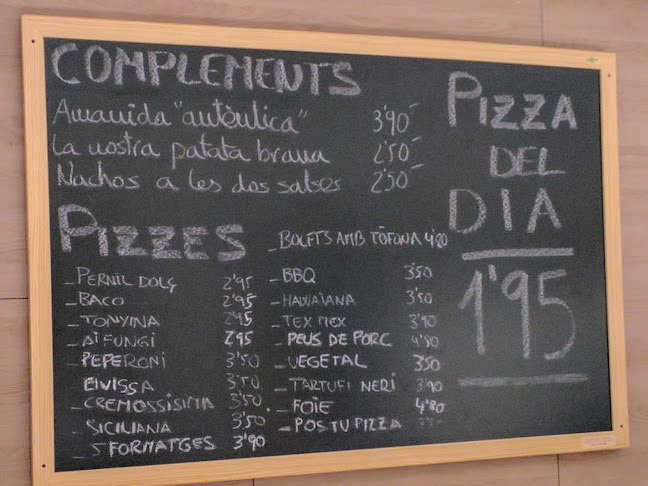 COMPLEMENTS
Amanida "autèntica" 3'90
La nostra patata brava 2'50
Nachos a les dos salses 2'50
PIZZES
- PERNIL DOLÇ 2'95
- BACO 2'95
- TONYINA 2'95
- AI FUNGI 2'95
- PEPERONI 3'50
EIVISSA 3'50
- CREMOSSISIMA 3'50.
- SICILIANA 3'50
- 5 FORMATGES 3'90
- BOLETS AMB TÒFONA 4'80
- BBQ 3'50
- HAWAIANA 3'50
- TEX MEX 3'90
- PEUS DE PORC 4'80
- VEGETAL 3'50
- TARTUFI NERI 3'90
- FOIE 4'80
- POS TU PIZZA
PIZZA
DEL
DIA
1'95